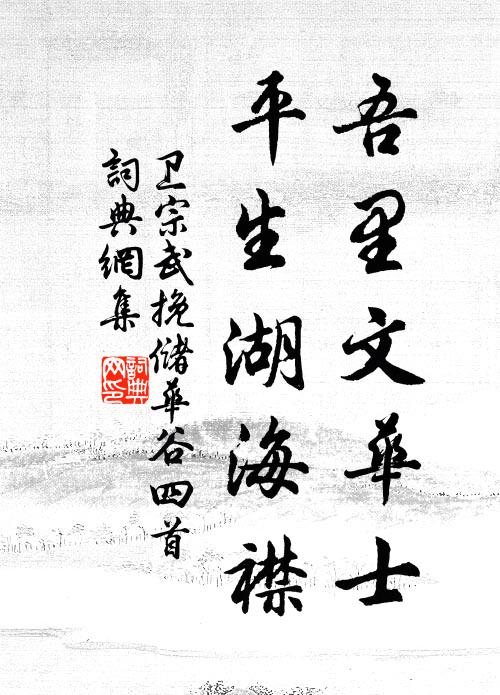 吾里文華士
平生湖海襟
卫宗武挽儲華谷四首
詞典網集
詞典网印